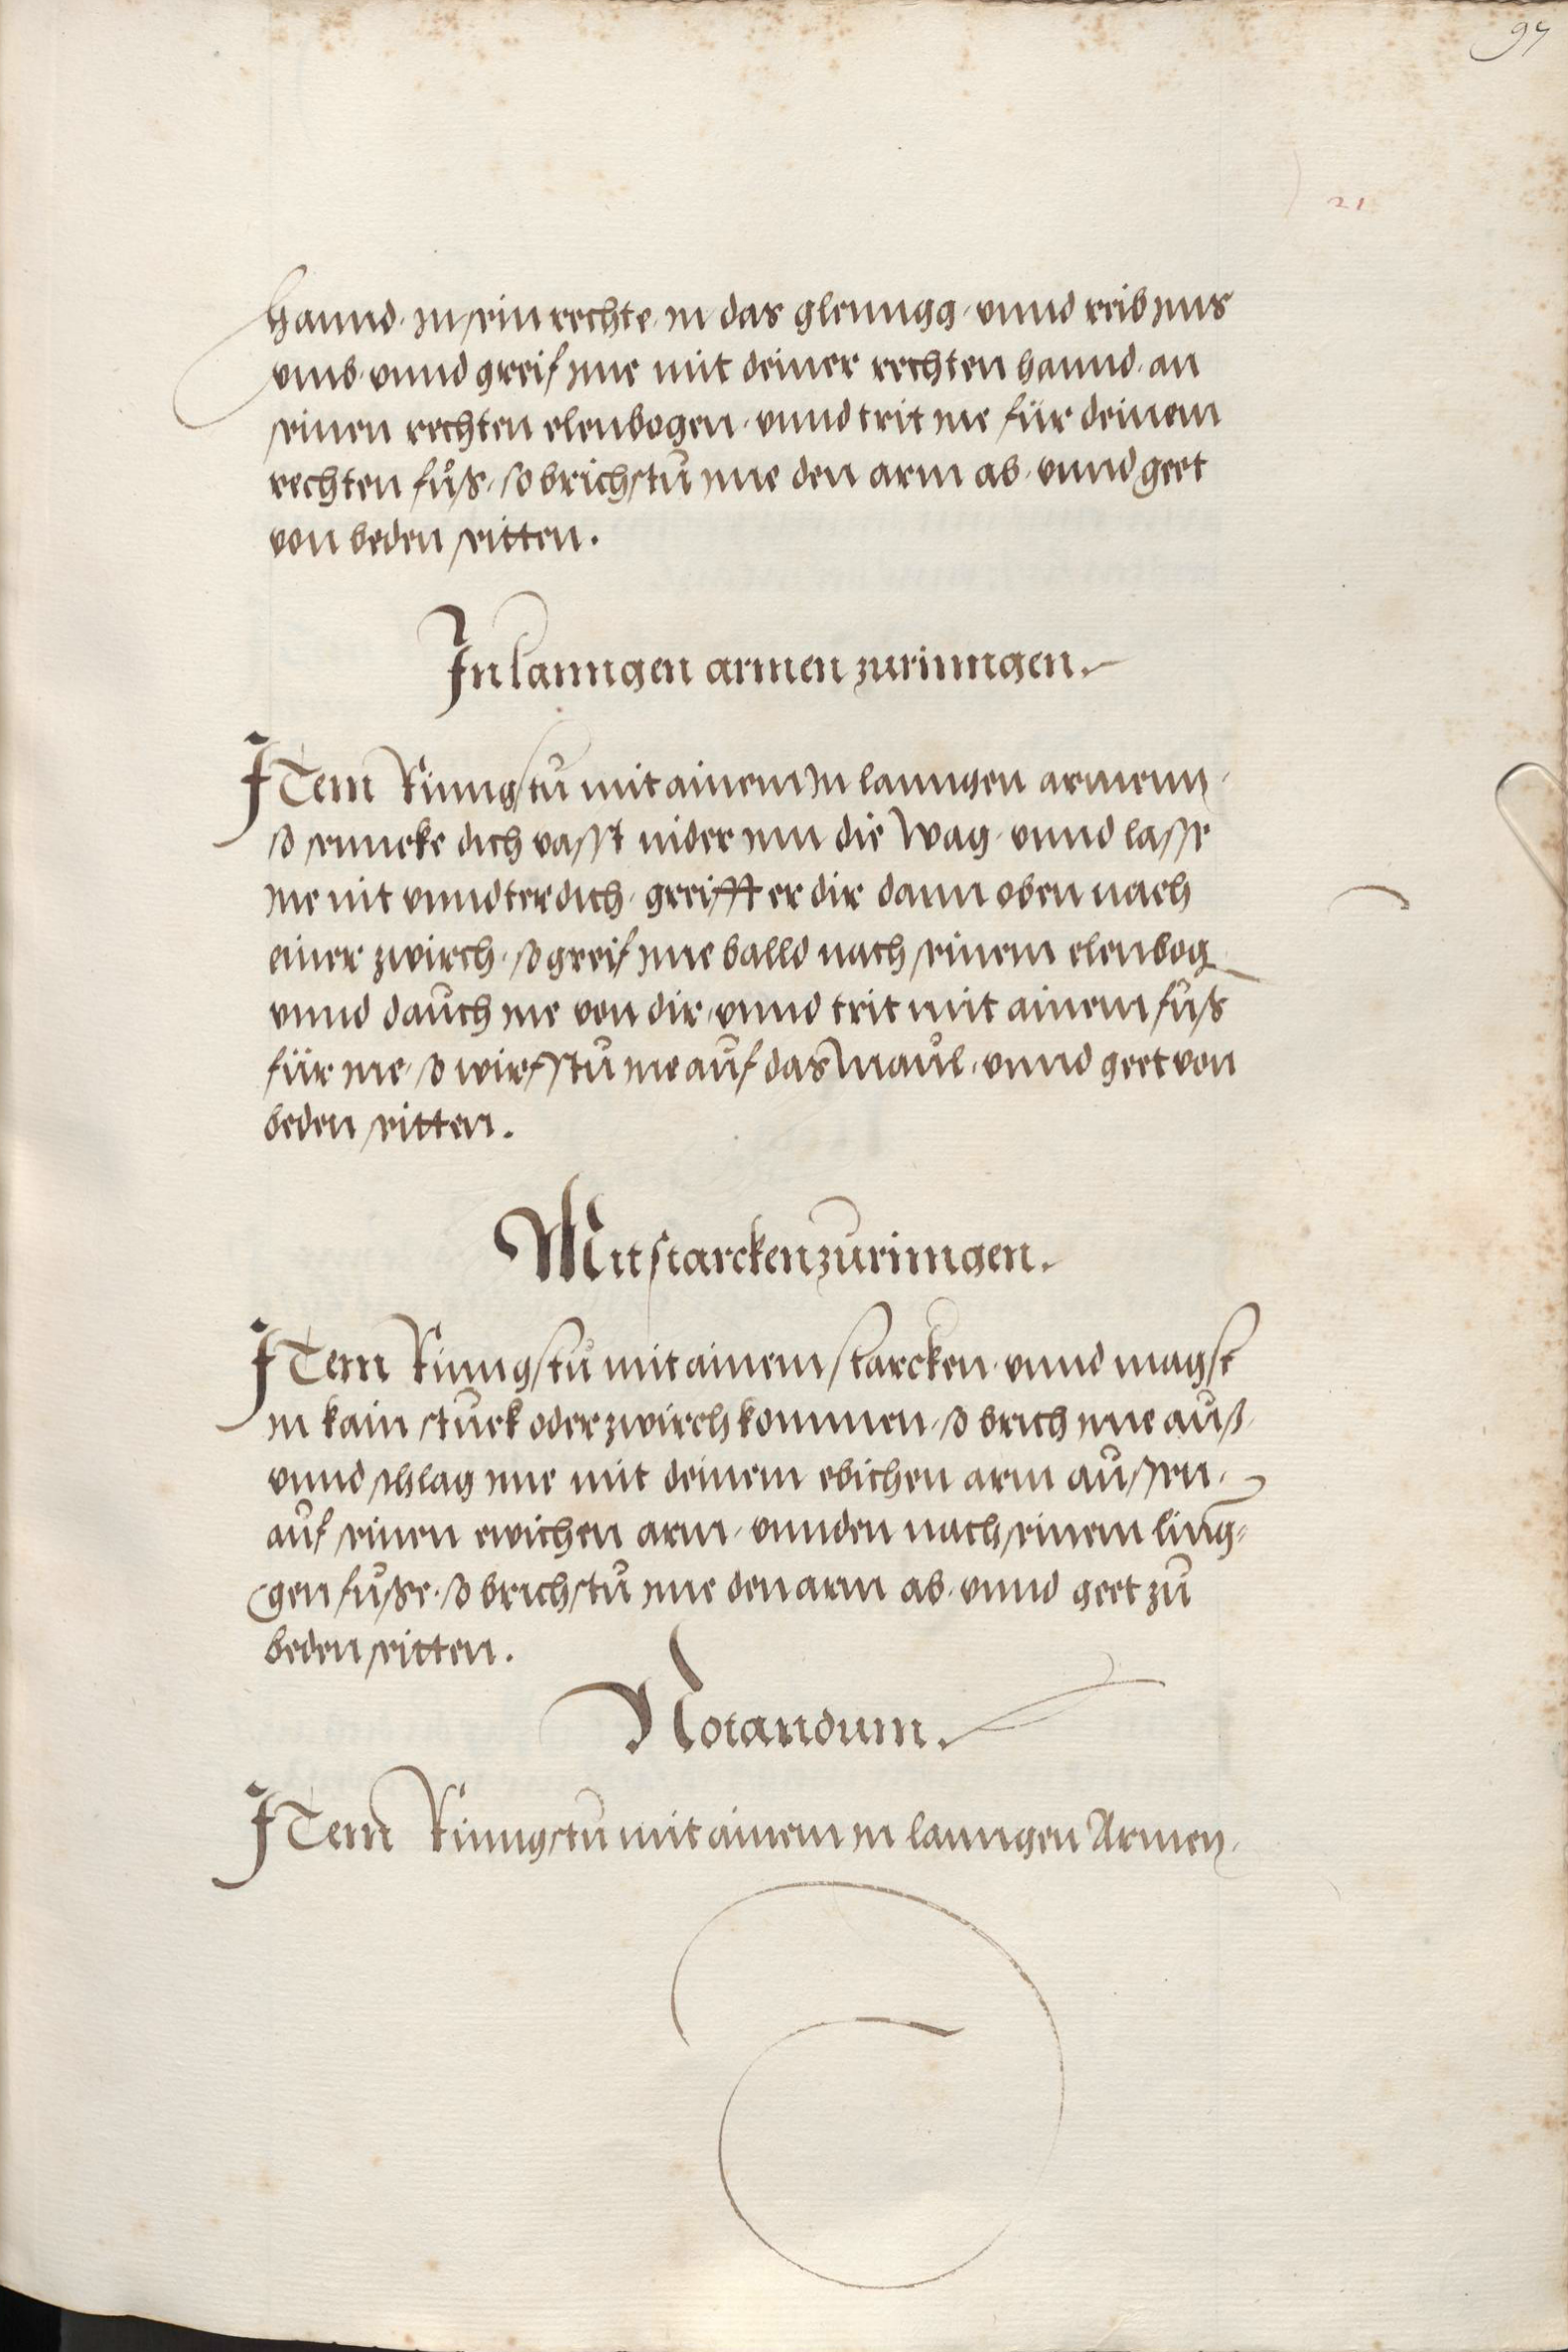 97
21
hannd. in sein rechte, in das glenngg, vnnd reib ims
vmb, vnnd greif ime mit deiner rechten hannd, an
seinen rechten elenbogen, vnnd trit ine für deinem
rechten fůß, so brichstu ime den arm ab, vnnd geet
von beden seitten.
In lanngen armen zu ringen.
ITem Ringstu mit ainem in lanngen armenn,
so senncke dich vasst nider inn die Wag, vnnd lasse
ine nit vnndter dich, greifft er dir dann oben nach
einer zwirch, so greif ime balld nach seinem elenbog
vnnd dauch ine von dir, vnnd trit mit ainem fuß
für ine, so wirfstu ine auf das Maul, vnnd geet von
beden seitten.
Mit starcken zu ringen.
ITem Ringstu mit ainem starcken, vnnd magst
in kain stuck oder zwirch kommen, so brich ime auß,
vnnd schlag ime mit deinem ebichen arm aussen,
auf seinen ewichen arm, vnnden nach seinem ling=
gen fuße, so brichstu ime den arm ab, vnnd geet zu
beden seitten.
Notandum.
ITem Ringstu mit ainem in lanngen Armen,